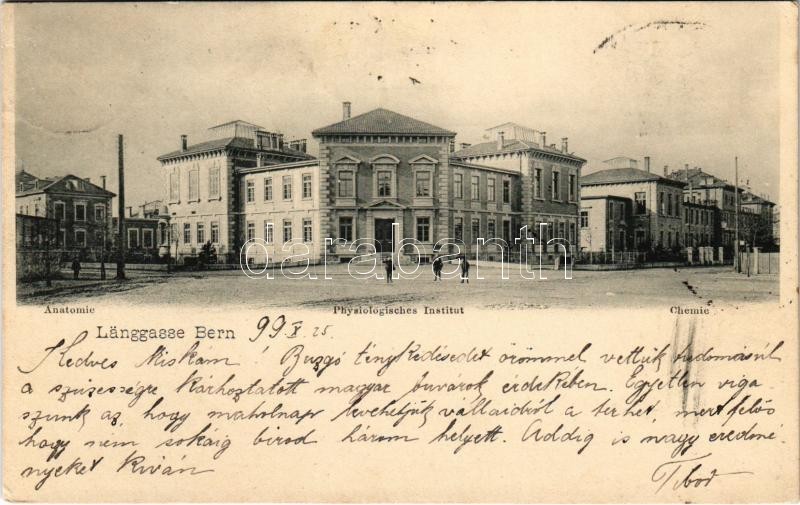 darabanth.com
Anatomie
Physiologisches Institut
Chemie
Länggasse Bern 99 X 25
Kedves Miskam! Buzgó ténykedésedet örömmel vettük tudomásúl
a szüzességre kárhoztatott magyar buvárok érdekében. Egyetlen viga
szunk az, hogy maholnap levehetjük vállaidról a terhet, mert félős
hogy nem sokáig birod három helyett. Addig is nagy eredmé
nyeket kíván
Tibor